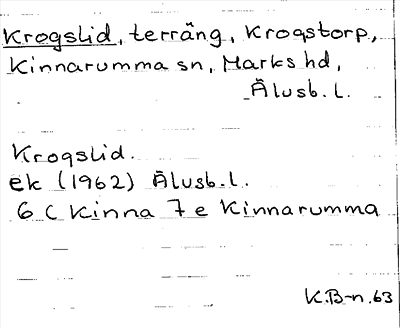 Krogslid, terräng, Krogstorp,
Kinnarumma sn, Marks hd,
Älvsb. l.
Krogslid.
ek (1962) Älvsb. l.
6 C Kinna 7 e Kinnarumma
K.B-n. 63